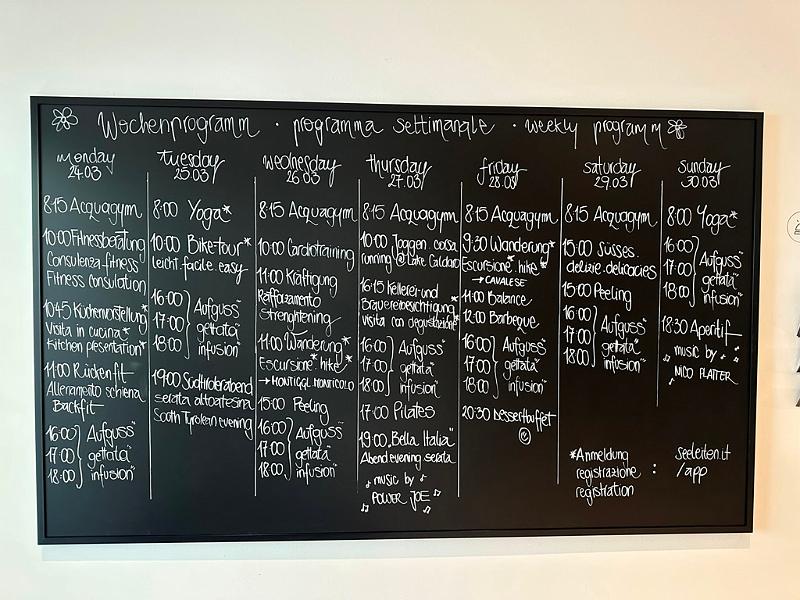 Wochenprogramm · programma settimanale · weekly programm
monday
24.03
8:15 Acquagym
10:00 Fitnessberatung
Consulenza fitness
Fitness consulation
10:45 Küchenvorstellung*
Visita in cucina*
Kitchen presentation*
11:00 Rücken fit
Allenamento schiena
Backfit
16:00
17:00
18:00
Aufguss"
gettata"
infusion"
tuesday
25.03
8:00 Yoga*
10:00 Bike-tour*
leicht. facile. easy
16:00
17:00
18:00
Aufguss"
gettata"
infusion"
19:00 Südtirolerabend
serata altoatesina
South Tyrolean evening
wednesday
26.03
8:15 Acquagym
10:00 Cardiotraining
11:00 Kräftigung
Rafforzamento
Strenghtening
11:00 Wanderung*
Escursione*. hike*
→ MONTIGGL MONTICOLO
15:00 Peeling
16:00
17:00
18:00
Aufguss"
gettata"
infusion"
thursday
27.03
8:15 Acquagym
10:00 Joggen. corsa.
running @ Lake Caldaro
16:15 Kellerei und
Brauereibesichtigung*
Visita con degustazione*
16:00
17:00
18:00
Aufguss"
gettata"
infusion"
17:00 Pilates
19:00 „Bella Italia"
Abend.evening.serata
music by
POWER JOE
friday
28.03
8:15 Acquagym
9:30 Wanderung*
Escursione*. hike*
→ CAVALESE
11:00 Balance
12:00 Barbeque
16:00
17:00
18:00
Aufguss"
gettata"
infusion"
20:30 Dessertbuffet
saturday
29.03
8:15 Acquagym
15:00 Süsses.
delizie. delicacies
15:00 Peeling
16:00
17:00
18:00
Aufguss"
gettata"
infusion"
sunday
30.03
8:00 Yoga*
16:00
17:00
18:00
Aufguss"
gettata"
infusion"
18:30 Aperitif
music by
NICO PLATTER
*Anmeldung
registrazione
registration
:
seeleiten.it
/app